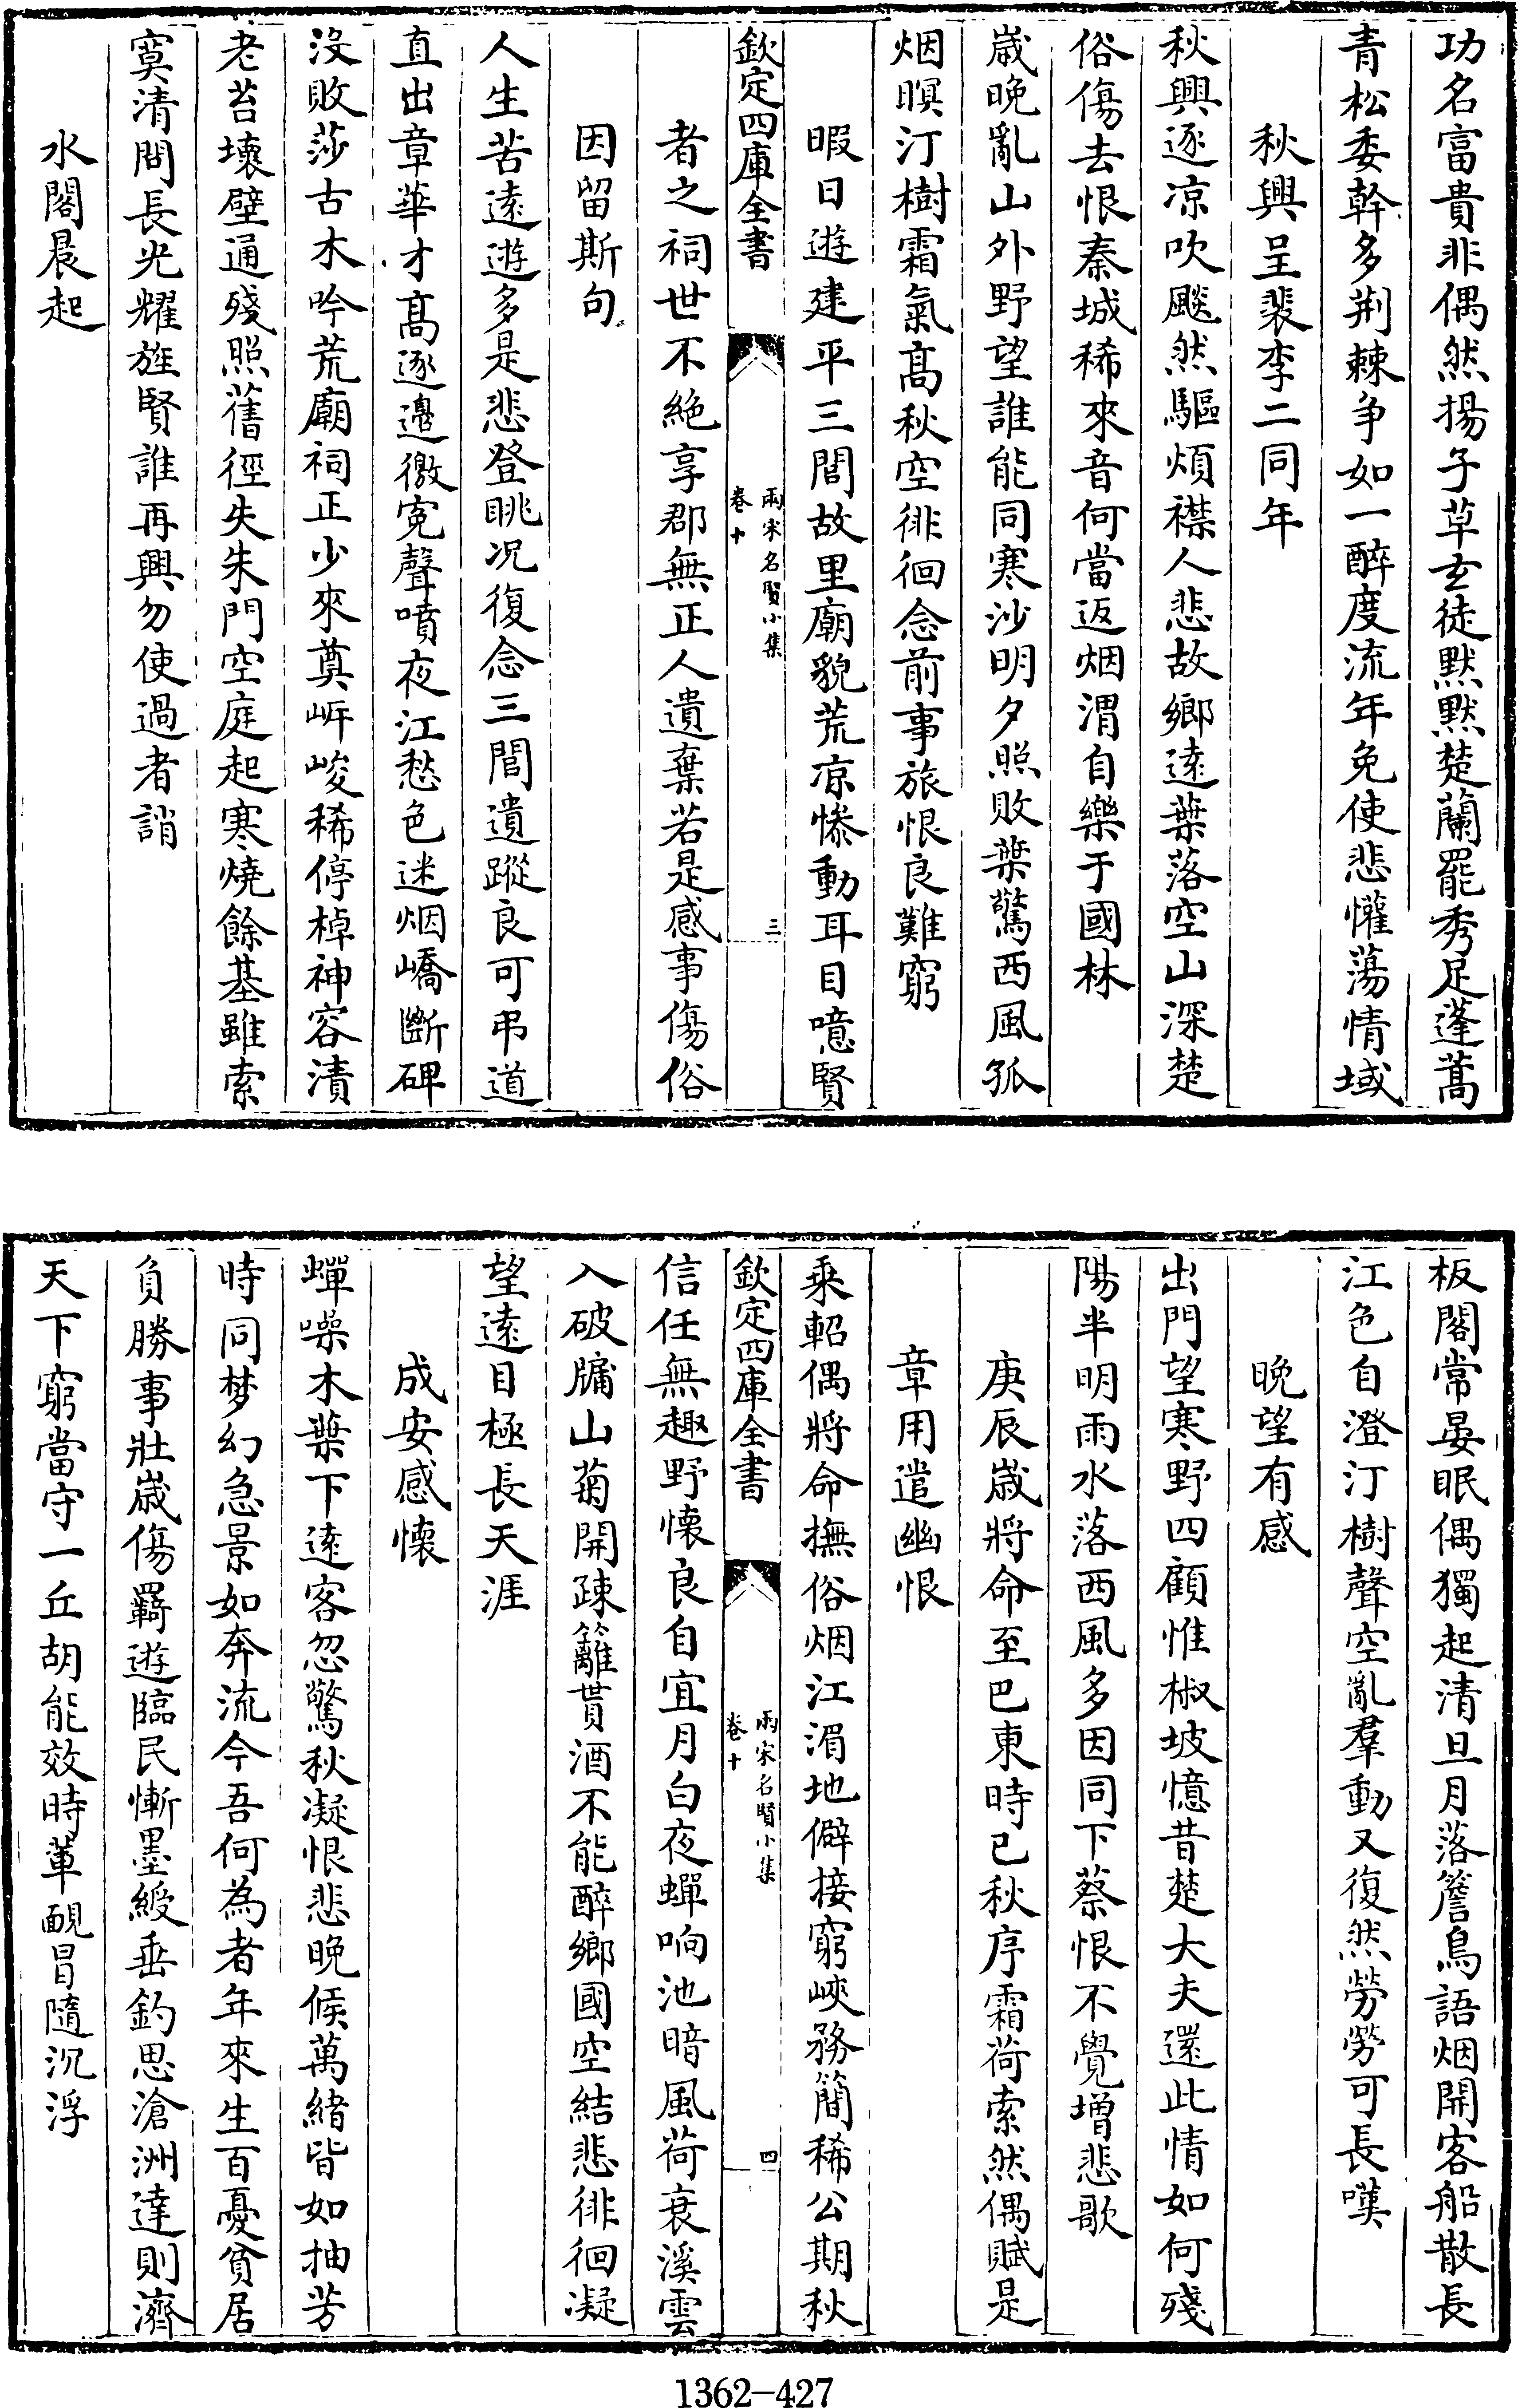 功名富貴非偶然揚子草玄徒黙黙楚蘭罷秀足蓬蒿
青松委幹多荆棘争如一醉度流年免使悲懽蕩情域
秋興呈裴李二同年
秋興逐凉吹飈然驅煩襟人悲故鄉逺葉落空山深楚
俗傷去恨秦城稀來音何當返烟渭自樂于國林
歳晚亂山外野望誰能同寒沙明夕照敗葉驚西風孤
烟暝汀樹霜氣髙秋空徘徊念前事旅恨良難窮
暇日遊建平三閭故里廟貌荒凉惨動耳目噫賢
欽定四庫全書
兩宋名賢小集
卷十
三
者之祠世不絶享郡無正人遺棄若是感事傷俗
因留斯句
人生苦逺遊多是悲登眺况復念三閭遺蹤良可弔道
直出章華才髙逐邊徼寃聲噴夜江愁色迷烟嶠斷碑
沒敗莎古木吟荒廟祠正少來奠岍峻稀停棹神容漬
老苔壊壁通殘照舊徑失朱門空庭起寒燒餘基雖索
寞清問長光耀旌賢誰再興勿使過者誚
水閣晨起
板閣常晏眠偶獨起清旦月落簷鳥語烟開客船散長
江色自澄汀樹聲空亂羣動又復然勞勞可長嘆
晩望有感
出門望寒野四顧惟椒坡憶昔楚大夫還此情如何殘
陽半明雨水落西風多因同下蔡恨不覺增悲歌
庚辰歳將命至巴東時已秋序霜荷索然偶賦是
章用遣幽恨
乘軺偶將命撫俗烟江湄地僻接窮峽務簡稀公期秋
欽定四庫全書
兩宋名賢小集
卷十
四
信任無趣野懐良自宜月白夜蟬响池暗風荷衰溪雲
入破牖山菊開疎籬貰酒不能醉鄉國空結悲徘徊凝
望逺目極長天涯
成安感懐
蟬噪木葉下逺客忽驚秋凝恨悲晩候萬緒皆如抽芳
時同梦幻急景如奔流今吾何為者年來生百憂貧居
負勝事壯歳傷羇遊臨民慚墨綬垂釣思滄洲達則濟
天下窮當守一丘胡能效時軰靦冒隨沉浮
1362-427